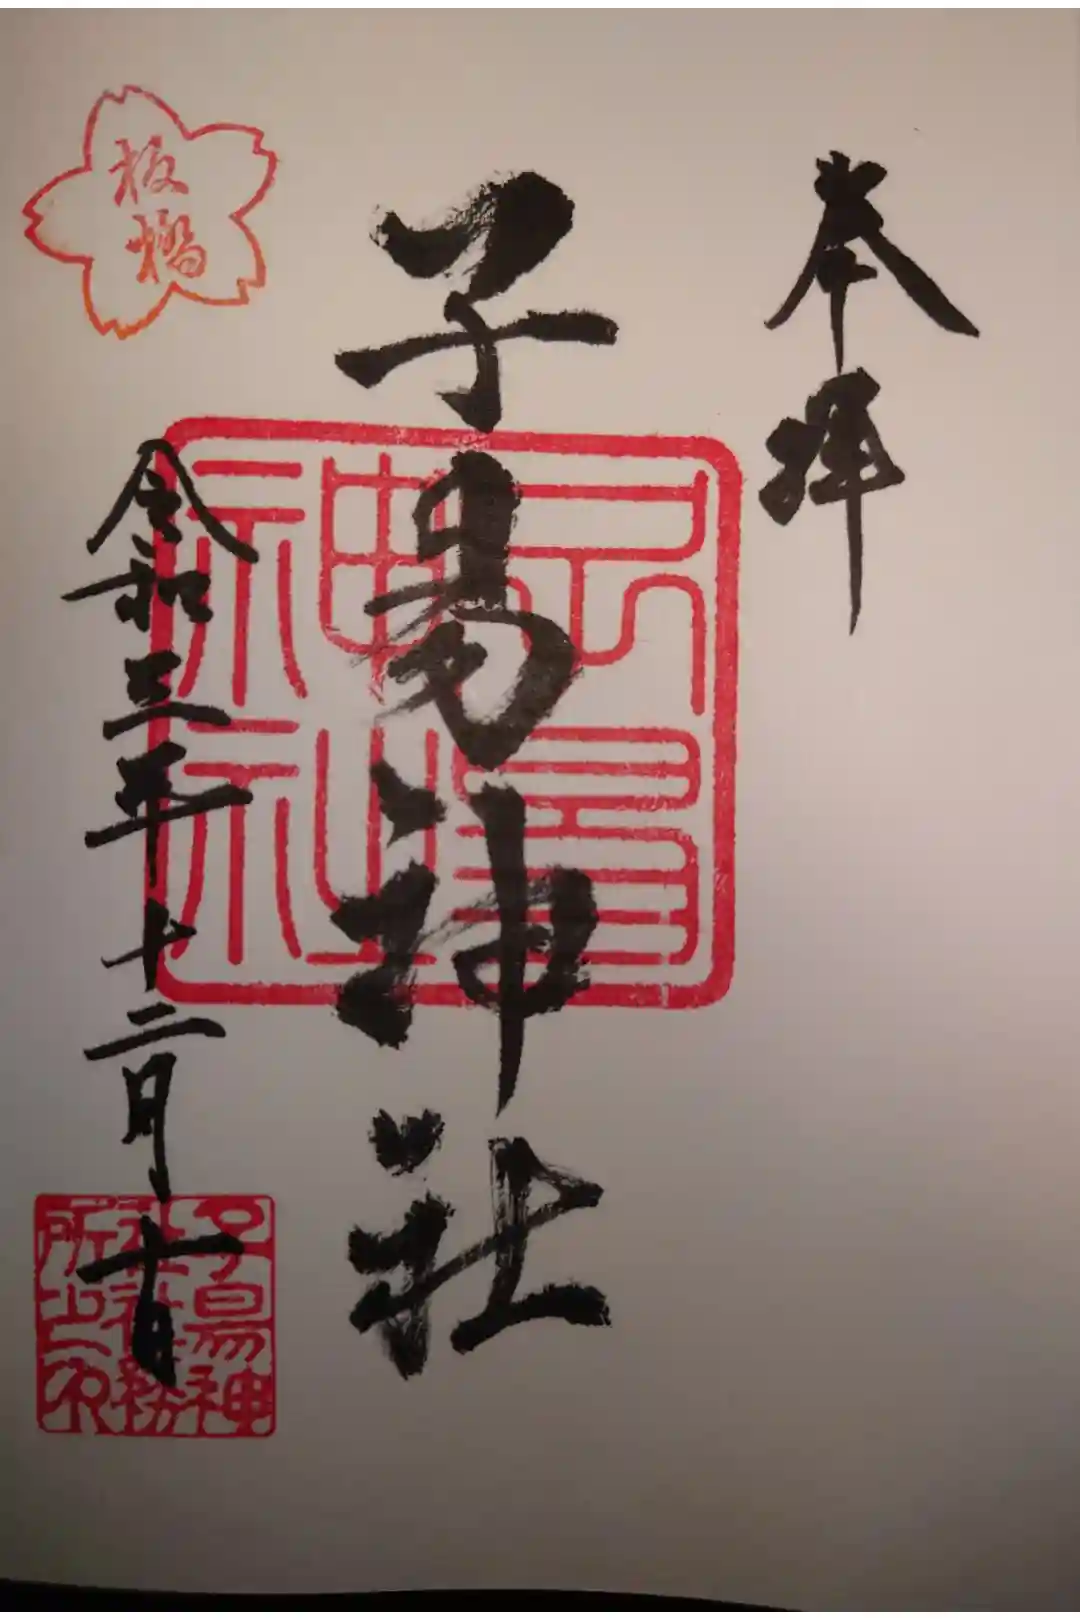 奉拝
子易神社
子易神社
板橋
令和三年十二月十日
子易神社社務所之印